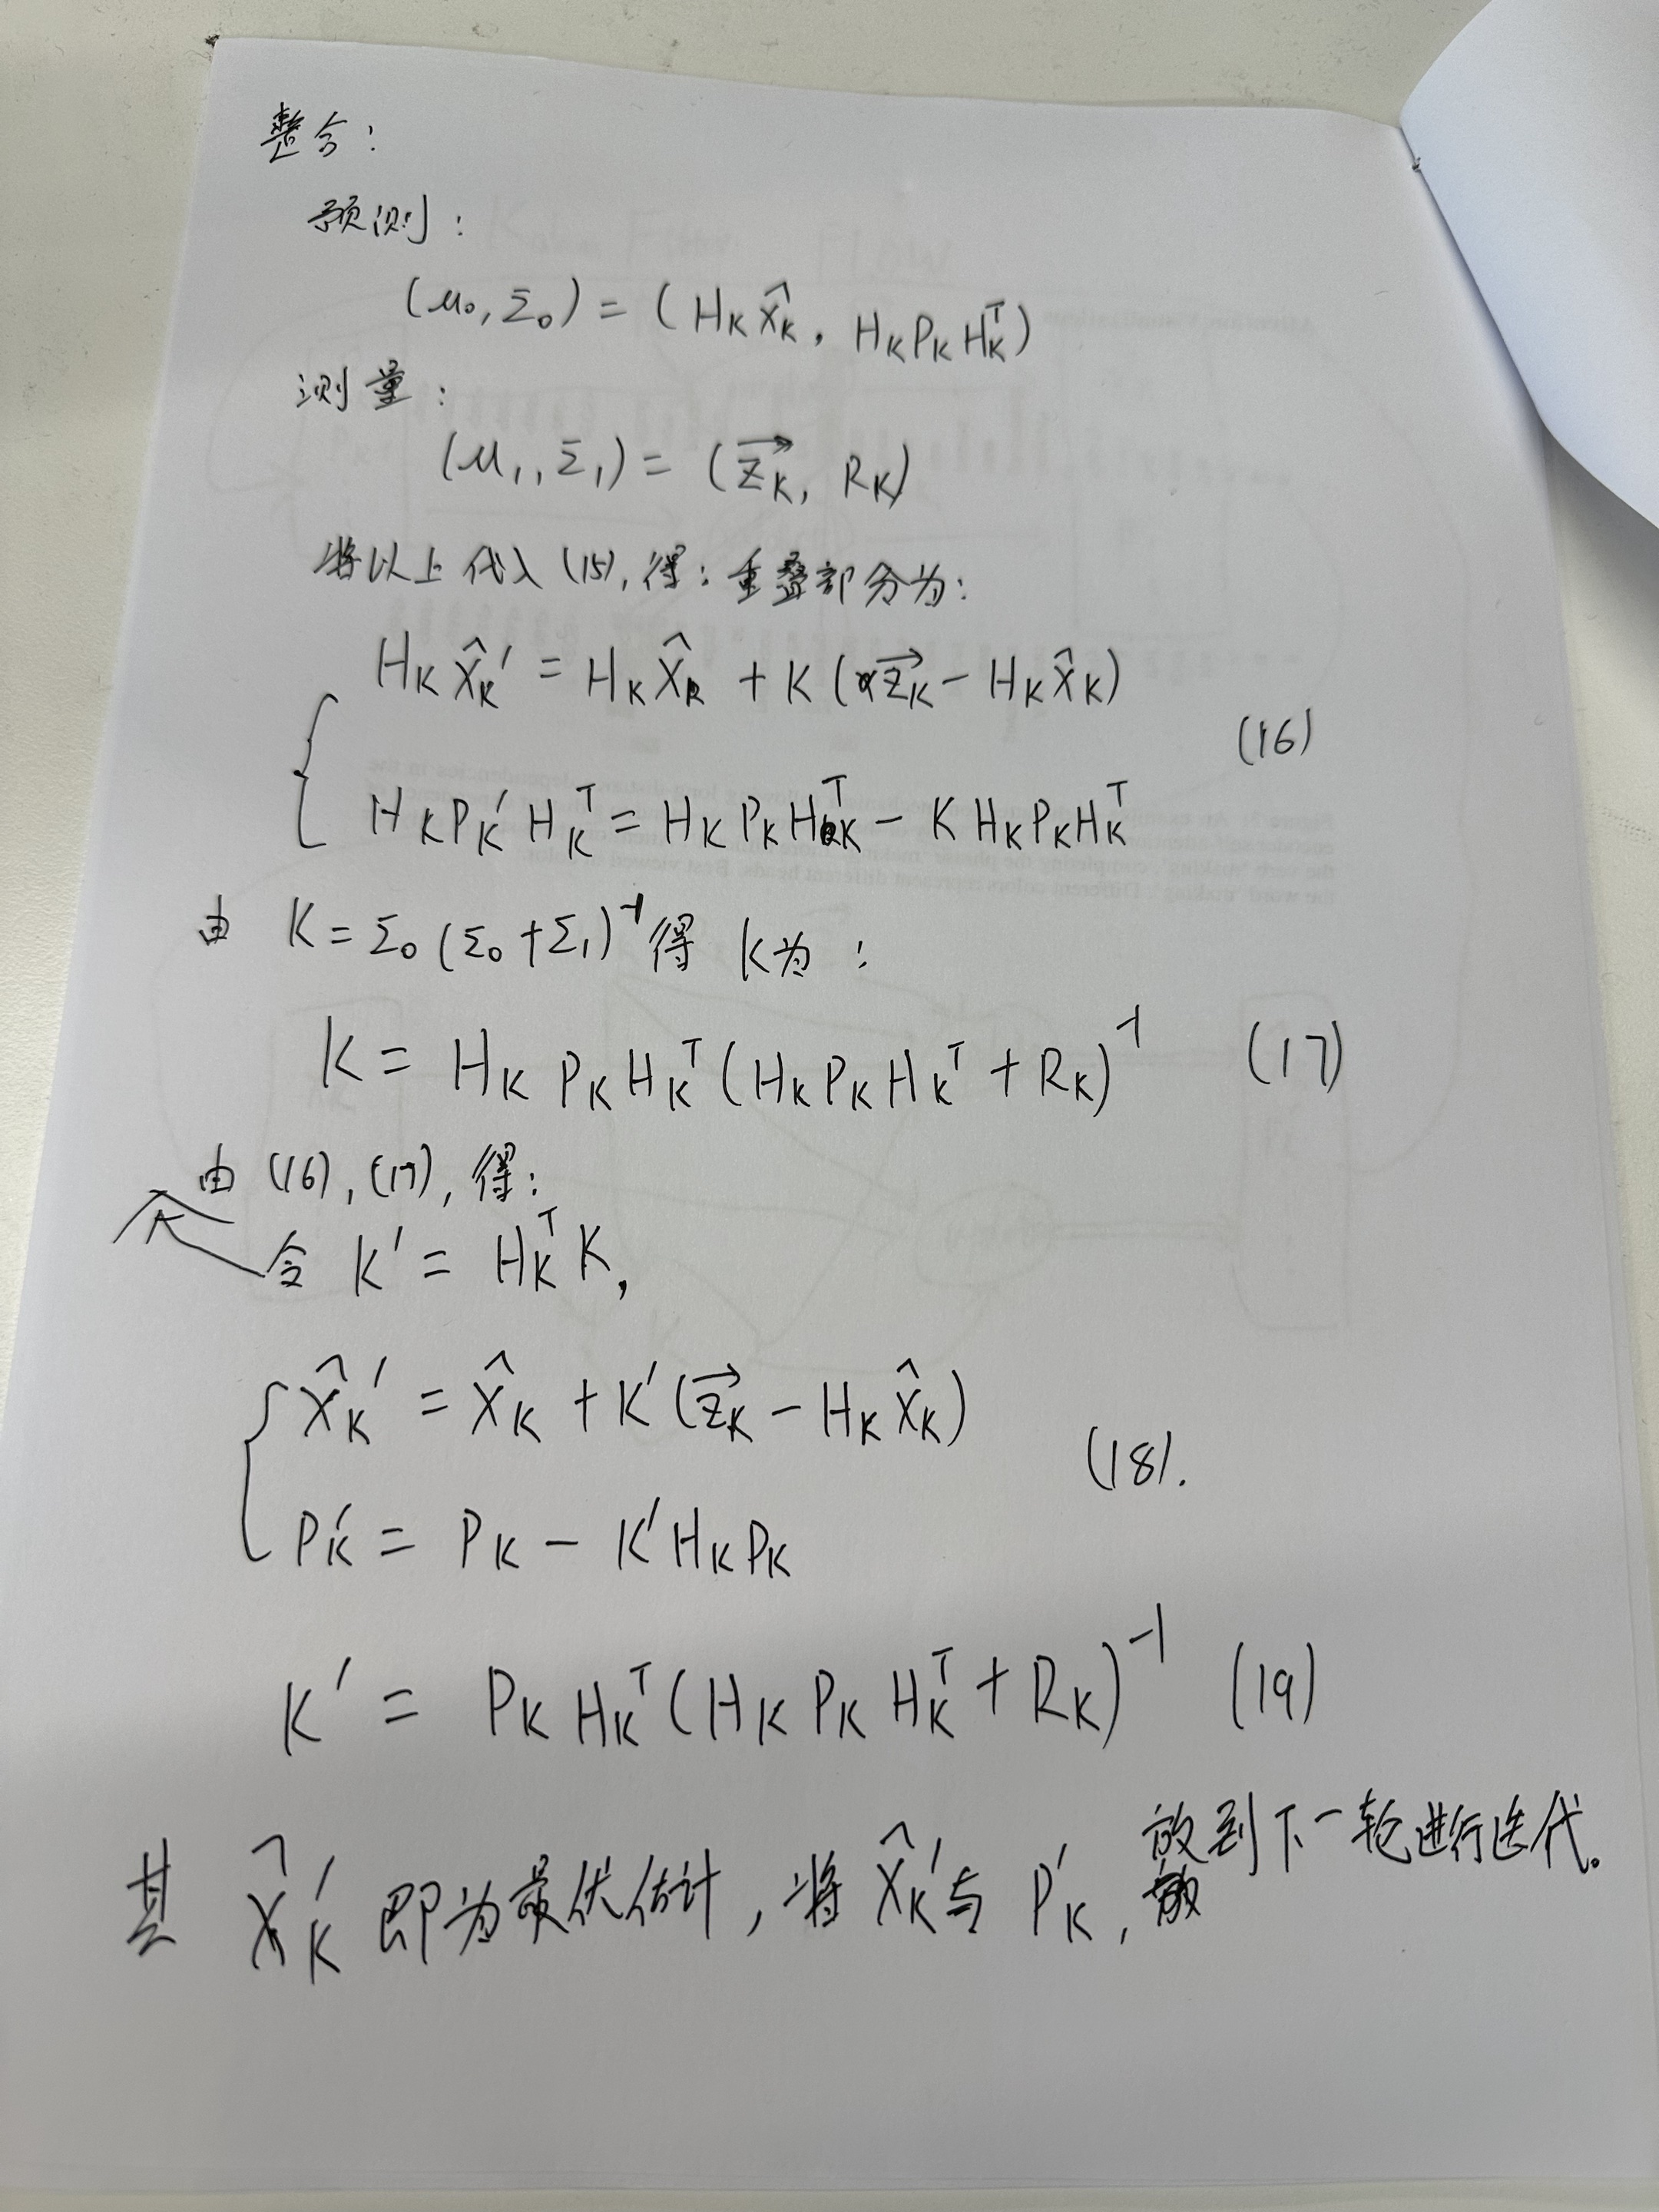 整合:
预测:
(μ₀, Σ₀) = (H_K X̂_K, H_K P_K H_K^T)
测量:
(μ₁, Σ₁) = (Z⃗_K, R_K)
将以上代入(15), 得: 重叠部分为:
H_K X̂_K' = H_K X̂_K + K (Z⃗_K - H_K X̂_K)
(16)
H_K P_K' H_K^T = H_K P_K H_K^T - K H_K P_K H_K^T
由 K = Σ₀ (Σ₀ + Σ₁)^-1 得 K为:
K = H_K P_K H_K^T (H_K P_K H_K^T + R_K)^-1 (17)
由 (16), (17), 得:
令 K' = H_K^T K,
X̂_K' = X̂_K + K' (Z⃗_K - H_K X̂_K)
(18).
P_K' = P_K - K' H_K P_K
K' = P_K H_K^T (H_K P_K H_K^T + R_K)^-1 (19)
其 X̂_K' 即为最优估计, 将 X̂_K' 与 P_K', 放到下一轮进行迭代。